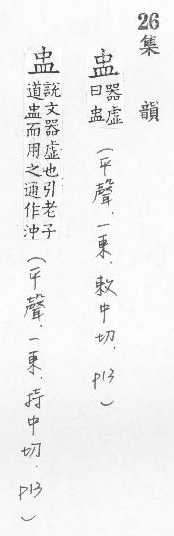 26集韻
盅器虛曰盅(平聲.一東.敕中切.p13)
盅說文器虛也引老子道盅而用之通作沖(平聲.一東.持中切.p13)